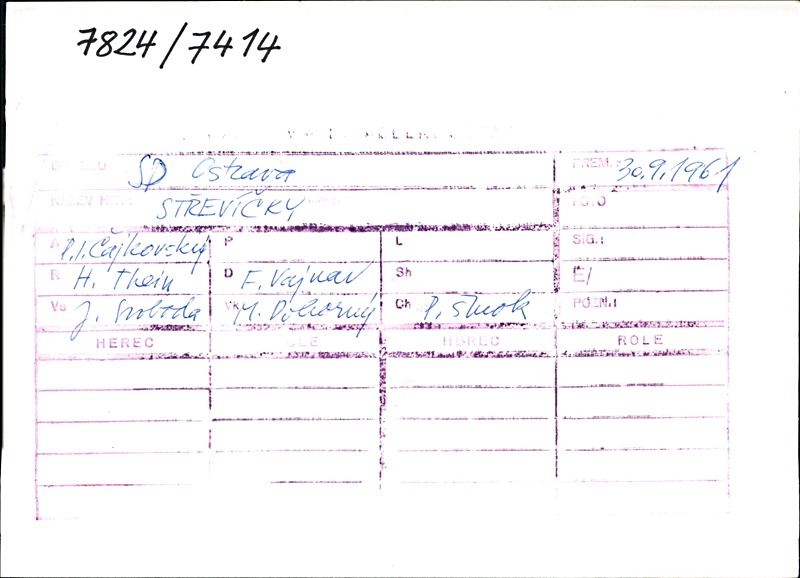 7824/7414
SD Ostrava PREM.: 30.9.1961
NÁZEV HRY: STŘEVÍČKY FOTO
A P.I. Čajkovský P L SIG.:
R H. Thein D F. Vajnar Sh Č/
Vs J. Svoboda Vk M. Ch P. Šmok POZN.:
HEREC ROLE HEREC ROLE